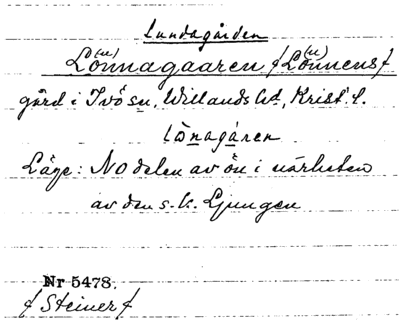 Lundagården
Lönnagaaren /Lönnens/
gård i Ivö sn, Willands hd, Krist. l.
lönagáren
Läge: NO delen av ön i närheten
av den s.k. Ljungen
Nr 5478.
/Steiner/